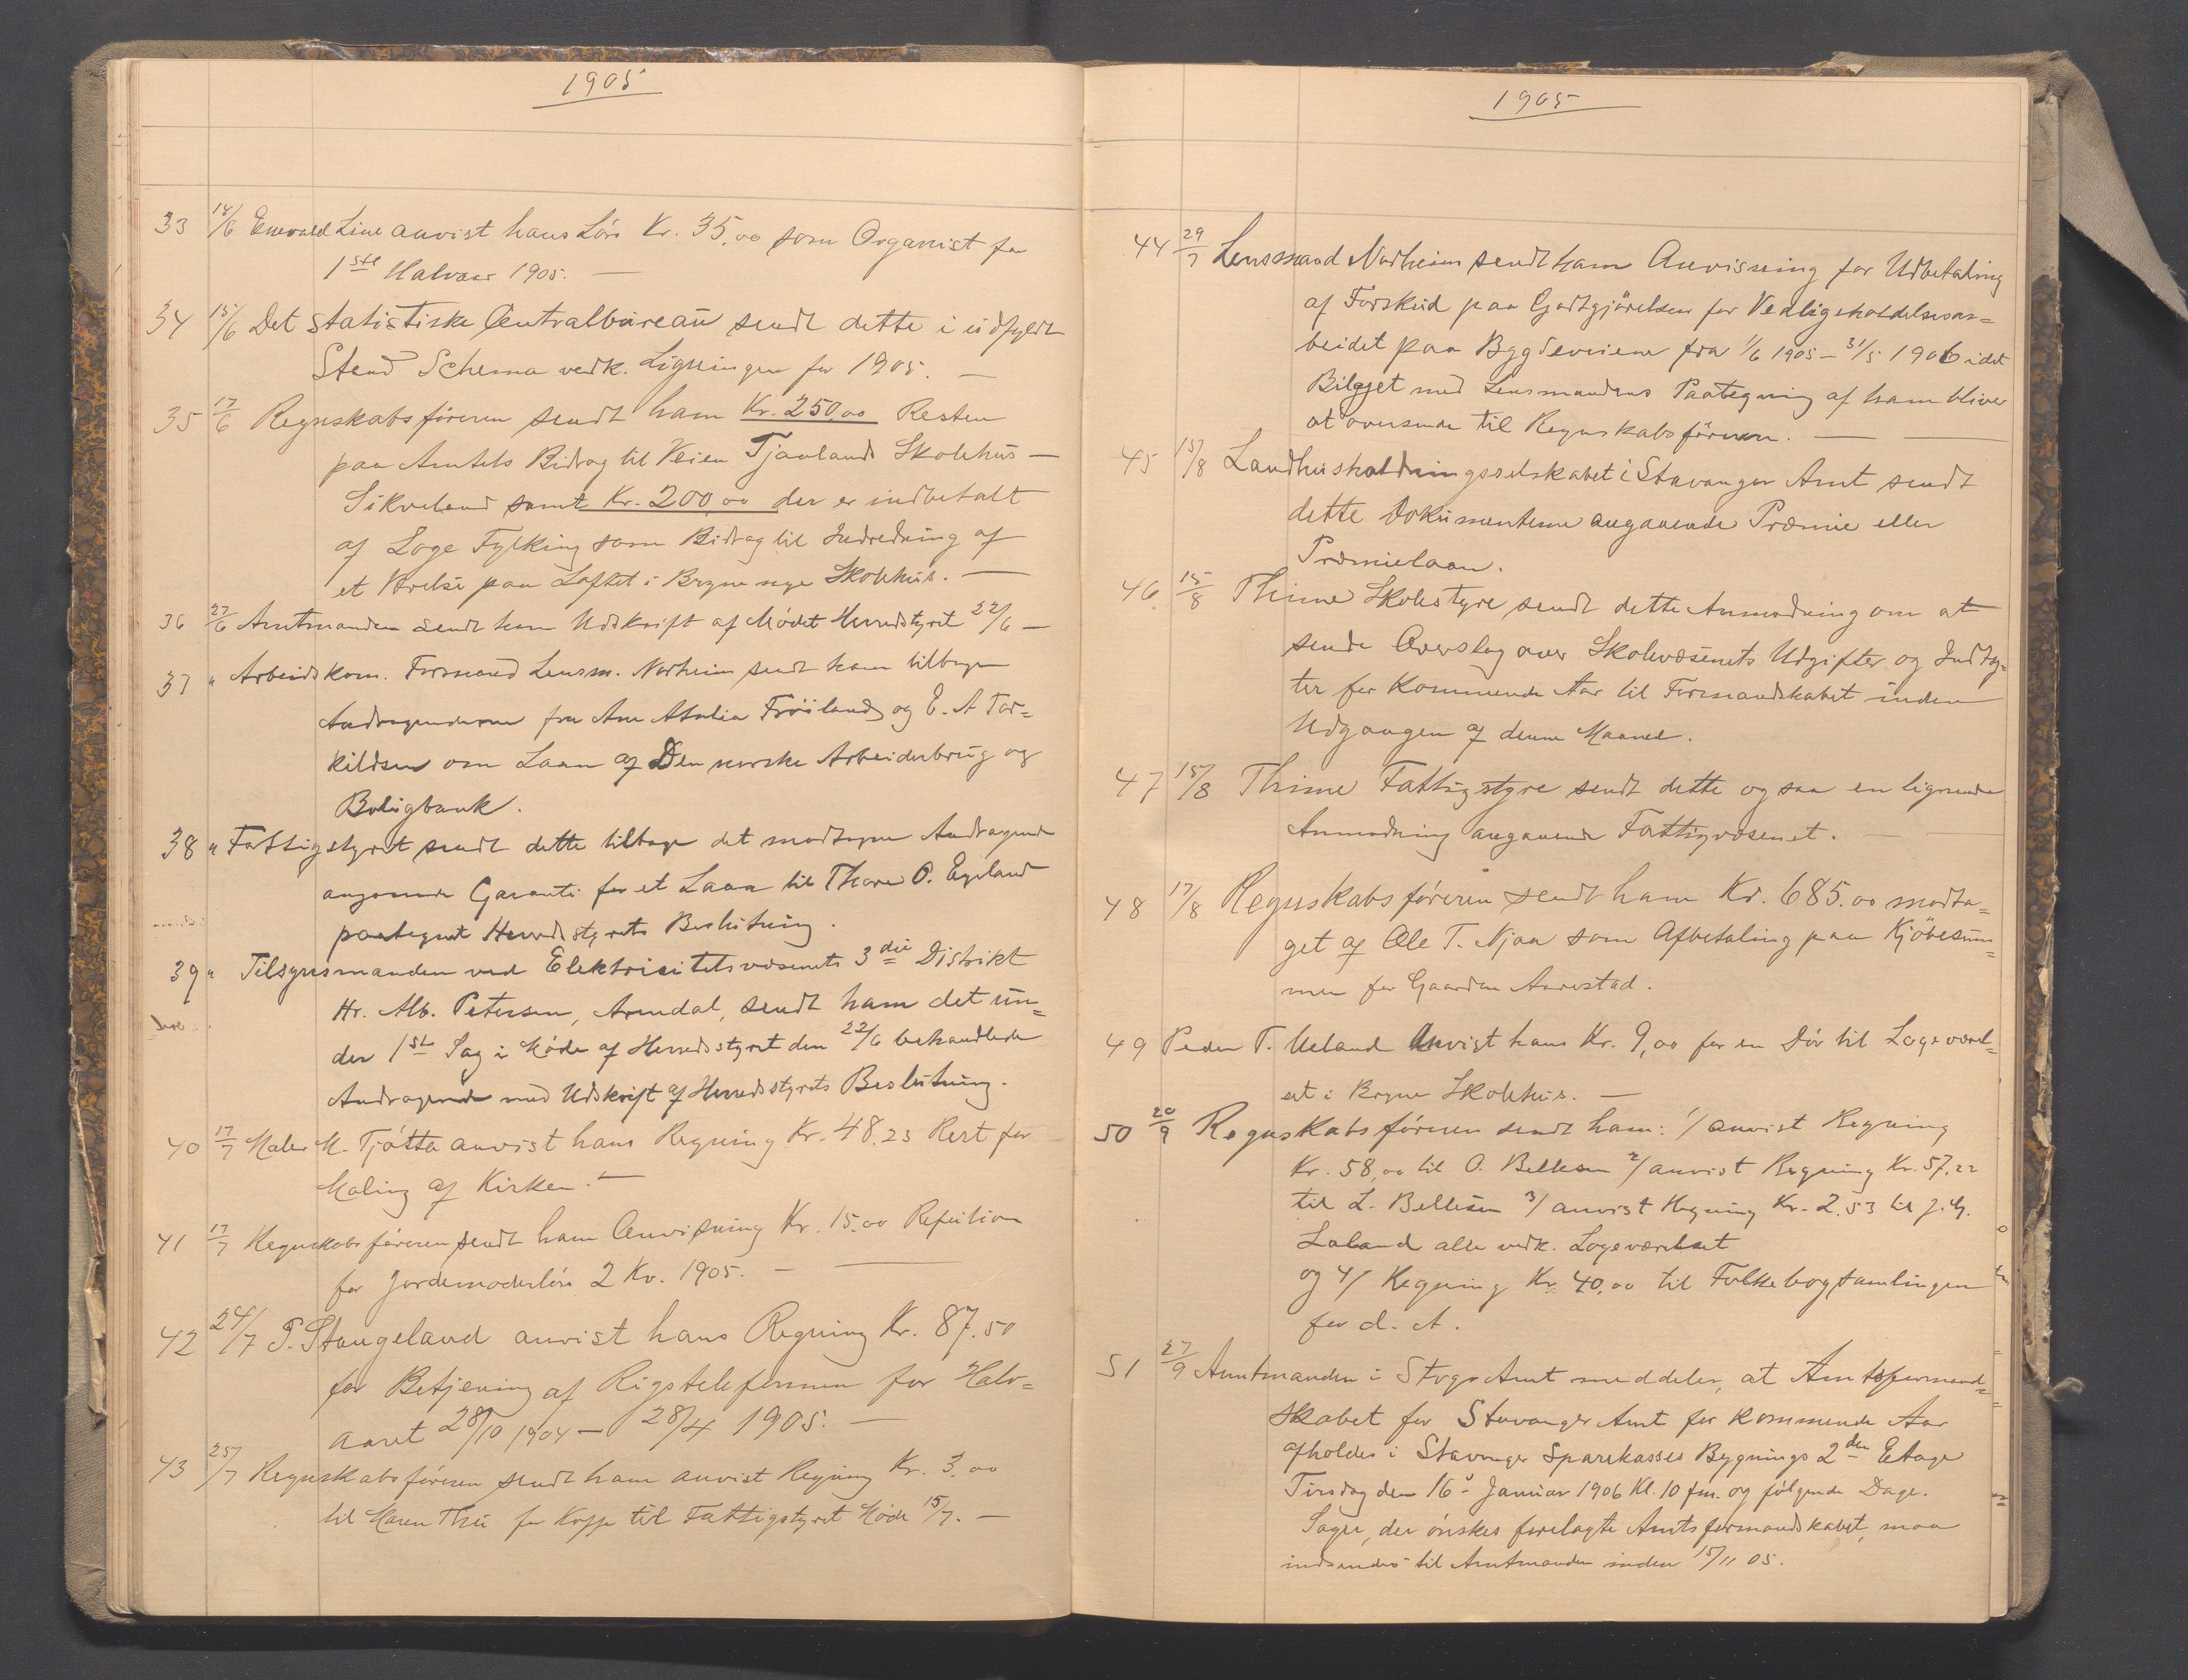 1905
33 14/6 Enevald Line anvist hans Løn Kr. 35,00 som Organist for
1ste Halvaar 1905. —
34 15/6 Det statistiske Centralbureau sendt dette i udfyldt
Stand Schema vedk. Ligningen for 1905. —
35 17/6 Regnskabsføreren sendt ham Kr. 250,00 Resten
paa Amtets Bidrag til Veien Tjaaland Skolehus —
Sikveland samt Kr. 200,00 der er indbetalt
af Loge Fylking som Bidrag til Indredning af
et Værelse paa Loftet i Bryne nye Skolehus. —
36 27/6 Amtmanden sendt ham Udskrift af Mødet Herredstyret 22/6 —
37 " Arbeidskom. Formand Lensm. Norheim sendt ham tilbage
Andragenderne fra Ane Atalia Frøiland og E. A Tor=
kildsen om Laan af Den norske Arbeiderbrug og
Boligbank.
38 " Fattigstyret sendt dette tilbage det modtagne Andragende
angaaende Garanti for et Laan til Thore O. Egeland
paategnet Herredstyrets Beslutning.
39 " Tilsynsmanden ved Elektricitetsvæsenets 3die Distrikt
Hr. Alb. Petersen, Arendal, sendt ham det un=
der 1ste Sag i Møde af Herredsstyret den 22/6 behandlede
Andragende med Udskrift af Herredsstyrets Beslutning.
40 17/7 Maler M. Tjøtta anvist hans Regning Kr. 48.25 Rest for
Maling af Kirken. —
41 17/7 Regnskabsføreren sendt ham Anvisning Kr. 15.00 Refution
for Jordemoderløn 2 Kv. 1905. —
42 24/7 P. Stangeland anvist hans Regning Kr. 87.50
for Betjening af Rigstelefonen for Halv=
aaret 28/10 1904 — 28/4 1905. —
43 25/7 Regnskabsføreren sendt ham anvist Regning Kr. 3,00
til Maren Thu for Kaffe til Fattigstyret Møde 15/7. —
1905
44 29/7 Lensmand Norheim sendt ham Anvisning for Udbetaling
af Forskud paa Godtgjörelsen for Vedligeholdelsesar=
beidet paa Bygdeveiene fra 1/6 1905 — 31/5 1906 idet
Bilaget med Lensmandens Paategning af ham bliver
at oversende til Regnskabsføreren. —
45 15/8 Landhusholdningsselskabet i Stavanger Amt sendt
dette Dokumenterne angaaende Præmie eller
Præmielaan.
46. 15/8 Thime Skolestyre sendt dette Anmodning om at
sende Overslag over Skolevæsenets Udgifter og Indtæg=
ter for Kommende Aar til Formandskabet inden
Udgangen af denne Maaned.
47 15/8 Thime Fattigstyre sendt dette ogsaa en lignende
Anmodning angaaende Fattigvæsenet. —
48 17/8 Regnskabsføreren sendt ham Kr. 685.00 modta=
get af Ole T. Njaa som Afbetaling paa Kjöbesum=
men for Gaarden Aarestad.
49 Peder T. Ueland Anvist hans Kr. 9,00 for en Dør til Logeværel=
set i Bryne Skolehus. —
50 20/9 Regnskabsføreren sendt ham: 1/ anvist Regning
Kr. 58,00 til O. Bellesen 2/ anvist Regning Kr. 57,22
til L. Bellesen 3/ anvist Regning Kr. 2.53 til J. G.
Laland alle vedk. Logeværelset
og 4/ Regning Kr. 40,00 til Folkebogsamlingen
for d. A.
51 27/9 Amtmanden i Stvgr Amt meddeler, at Amtsformand=
skabet for Stavanger Amt for kommende Aar
afholdes i Stavanger Sparekasses Bygnings 2den Etage
Tirsdag den 16. Januar 1906 Kl. 10 fm. og følgende Dage.
Sager, der ønskes forelagte Amtsformandskabet, maa
indsendes til Amtmanden inden 15/11 05.